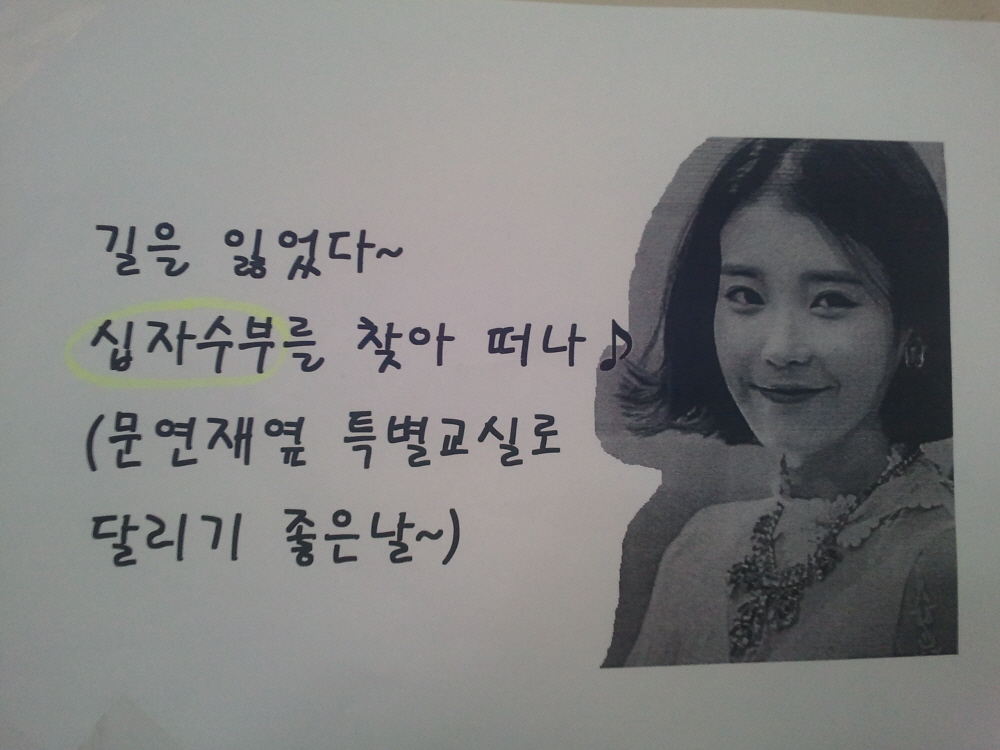 길을 잃었다~
십자수부를 찾아 떠나♪
(문연재옆 특별교실로
달리기 좋은날~)